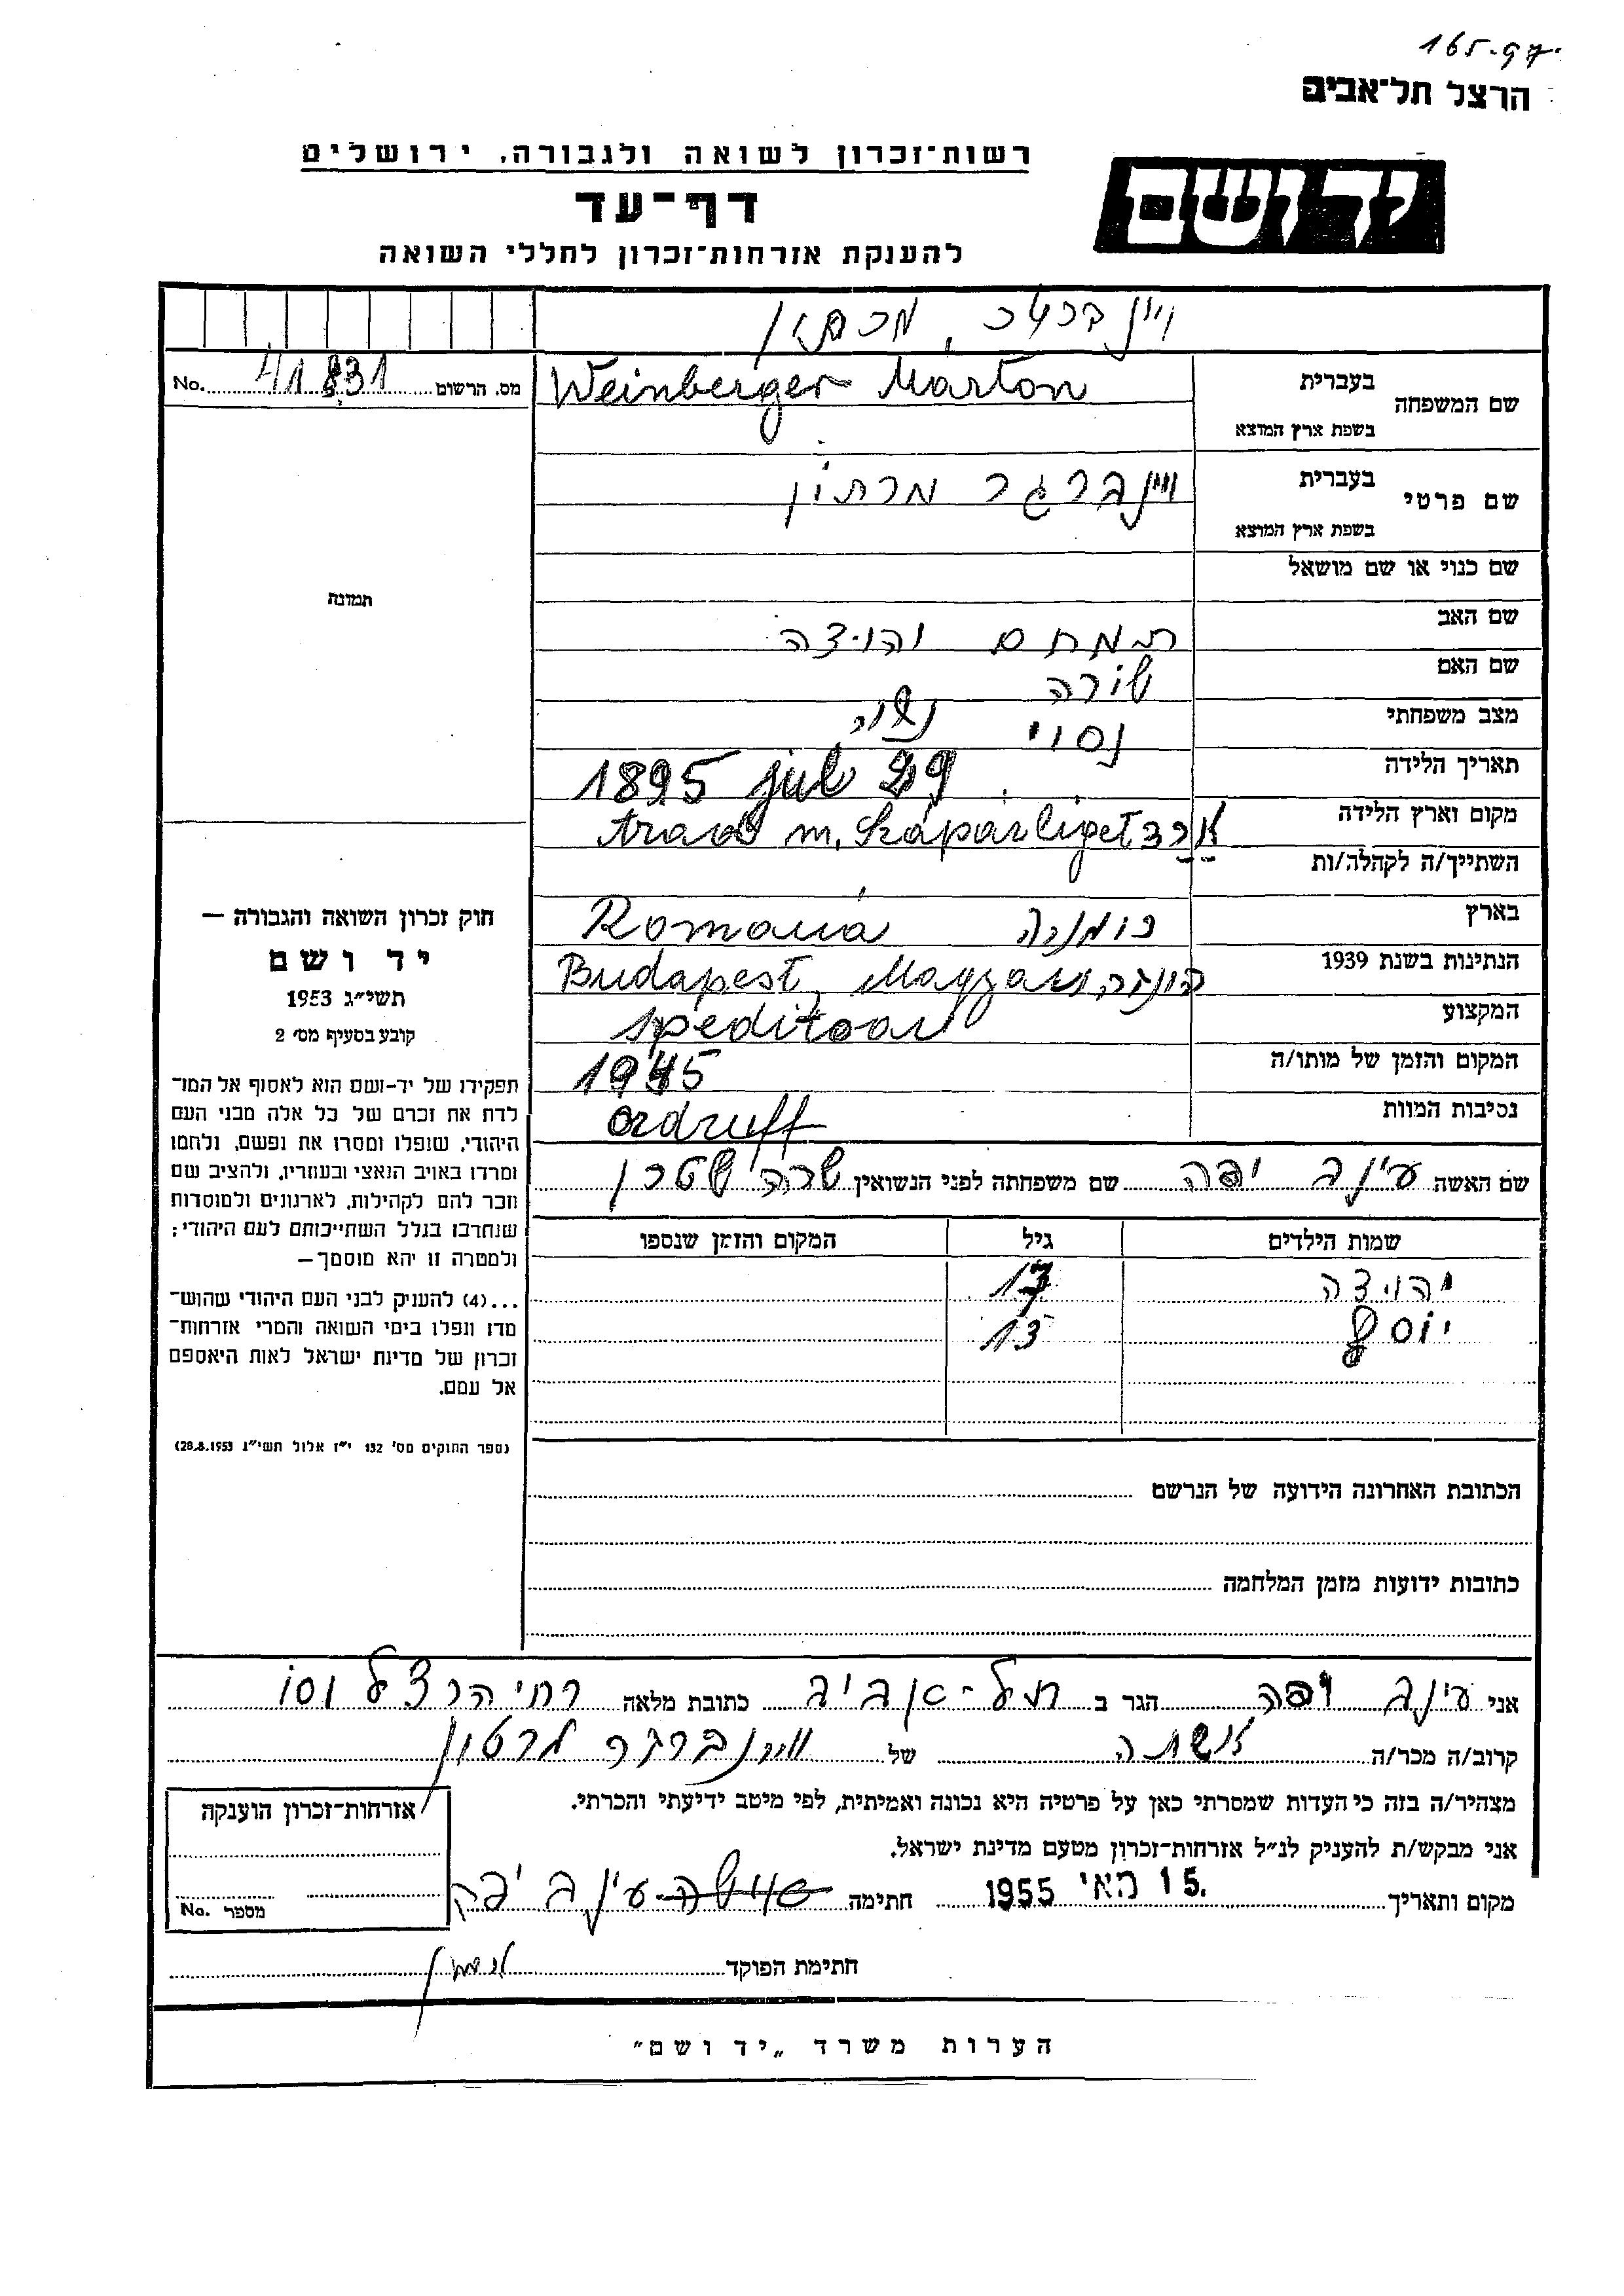 165-97
הרצל תל־אביב
רשות־זכרון לשואה ולגבורה, ירושלים
יד ושם
דף־עד
להענקת אזרחות־זכרון לחללי השואה
ויינברגר, מרטון
מס. הרשום 41831 No.
שם המשפחה בעברית Weinberger Marton
בשפת ארץ המוצא
שם פרטי בעברית ויינברגר מרתון
בשפת ארץ המוצא
שם כנוי או שם מושאל
תמונה
שם האב מנחם והויצה
שם האם שורה
מצב משפחתי נסוי נשוי
תאריך הלידה 1895 jul 29
מקום וארץ הלידה Arad m. Kápárliget ארד
השתייך/ה לקהלה/ות
בארץ רומניה Romania
הנתינות בשנת 1939 Budapest, Magyar
המקצוע speditoar
המקום והזמן של מותו/ה 1945
נסיבות המוות ordruff
שם האשה עינב יפה שם משפחתה לפני הנשואין שטרן
שמות הילדים גיל המקום והזמן שנספו
יהויצה 17
יוסף 13
הכתובת האחרונה הידועה של הנרשם
כתובות ידועות מזמן המלחמה
חוק זכרון השואה והגבורה —
יד ושם
תשי״ג 1953
קובע בסעיף מס׳ 2
תפקידו של יד־ושם הוא לאסוף אל המו־
לדת את זכרם של כל אלה מבני העם
היהודי, שנפלו ומסרו את נפשם, נלחמו
ומרדו באויב הנאצי ובעוזריו, ולהציב שם
וזכר להם לקהילות, לארגונים ולמוסדות
שנחרבו בגלל השתייכותם לעם היהודי;
ולמטרה זו יהא מוסמך—
...(4) להעניק לבני העם היהודי שהוש־
מדו ונפלו בימי השואה והמרי אזרחות־
זכרון של מדינת ישראל לאות היאספם
אל עמם.
(ספר החוקים מס׳ 132 י״ז אלול תשי״ג 28.8.1953)
אני עינב יפה הגר ב תל-אביב כתובת מלאה רח׳ הרצל
קרוב/ה מכר/ה אשתה של ויינברגר מרטון
מצהיר/ה בזה כי העדות שמסרתי כאן על פרטיה היא נכונה ואמיתית, לפי מיטב ידיעתי והכרתי.
אני מבקש/ת להעניק לנ״ל אזרחות־זכרון מטעם מדינת ישראל.
מקום ותאריך 15 מאי 1955 חתימה עינב יפה
אזרחות־זכרון הוענקה
מספר No.
חתימת הפוקד
הערות משרד „יד ושם״